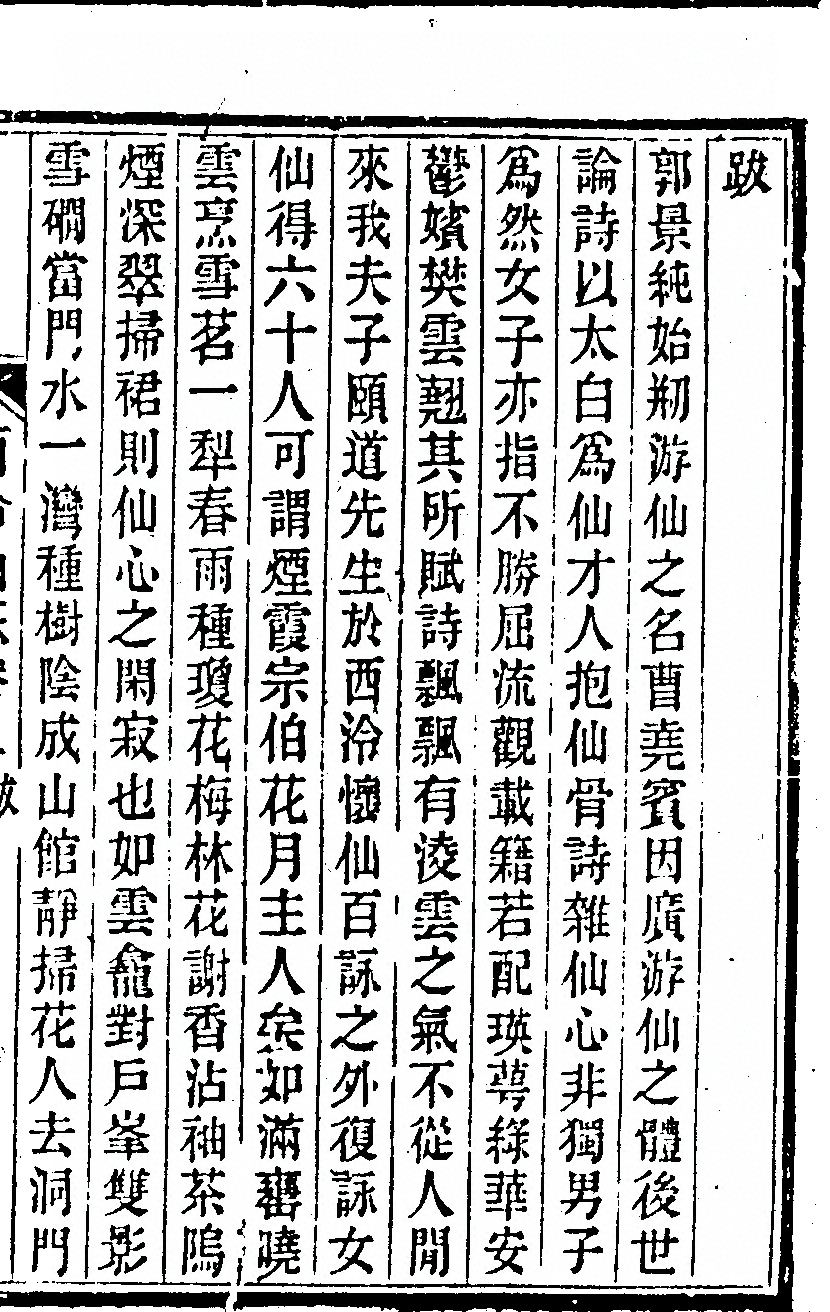 跋
郭景純始刱游仙之名曹堯賓因廣游仙之體後世
論詩以太白爲仙才人抱仙骨詩雜仙心非獨男子
爲然女子亦指不勝屈流觀載籍若配瑛萼綠華安
鬱嬪樊雲翹其所賦詩飄飄有淩雲之氣不從人閒
來我夫子頤道先生於西泠懷仙百詠之外復詠女
仙得六十人可謂煙霞宗伯花月主人矣如滿罋曉
雲烹雪茗一犁春雨種瓊花梅林花謝香沾袖茶隖
煙深翠掃裙則仙心之閑寂也如雲龕對戶峯雙影
雪磵當門水一灣種樹陰成山館靜掃花人去洞門